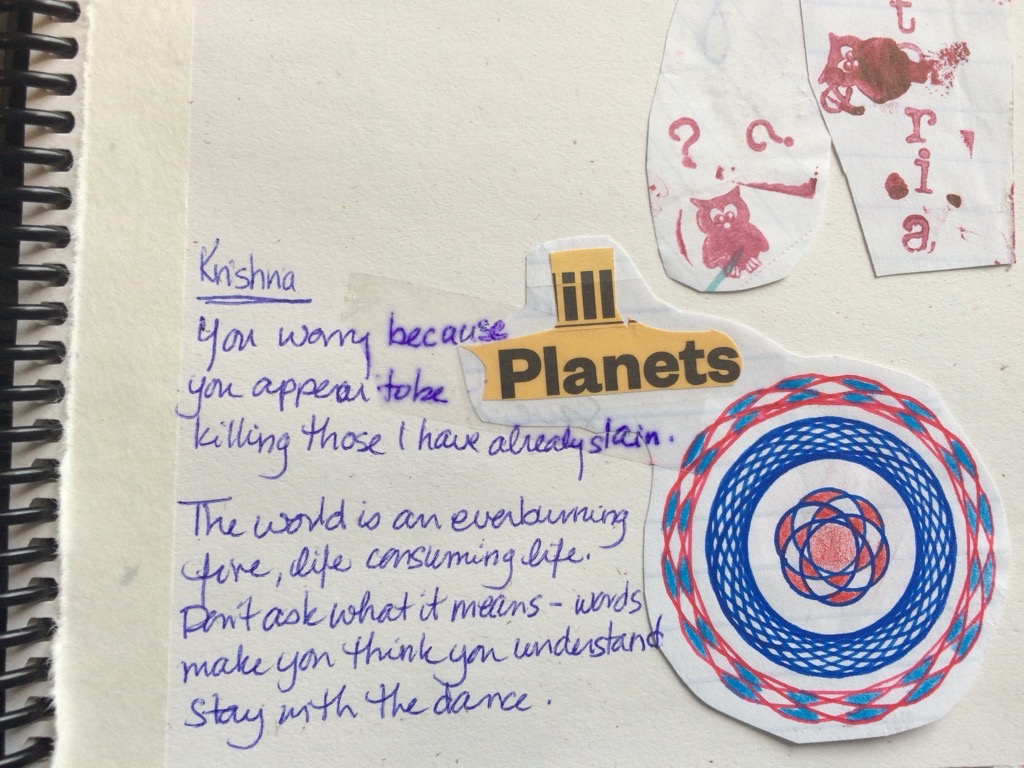 t
&
? ?
r
i
a
Krishna
ill
Planets
You worry because
you appear to be
killing those I have already slain.
The world is an everburning
fire, life consuming life.
Don't ask what it means – words
make you think you understand
Stay with the dance.